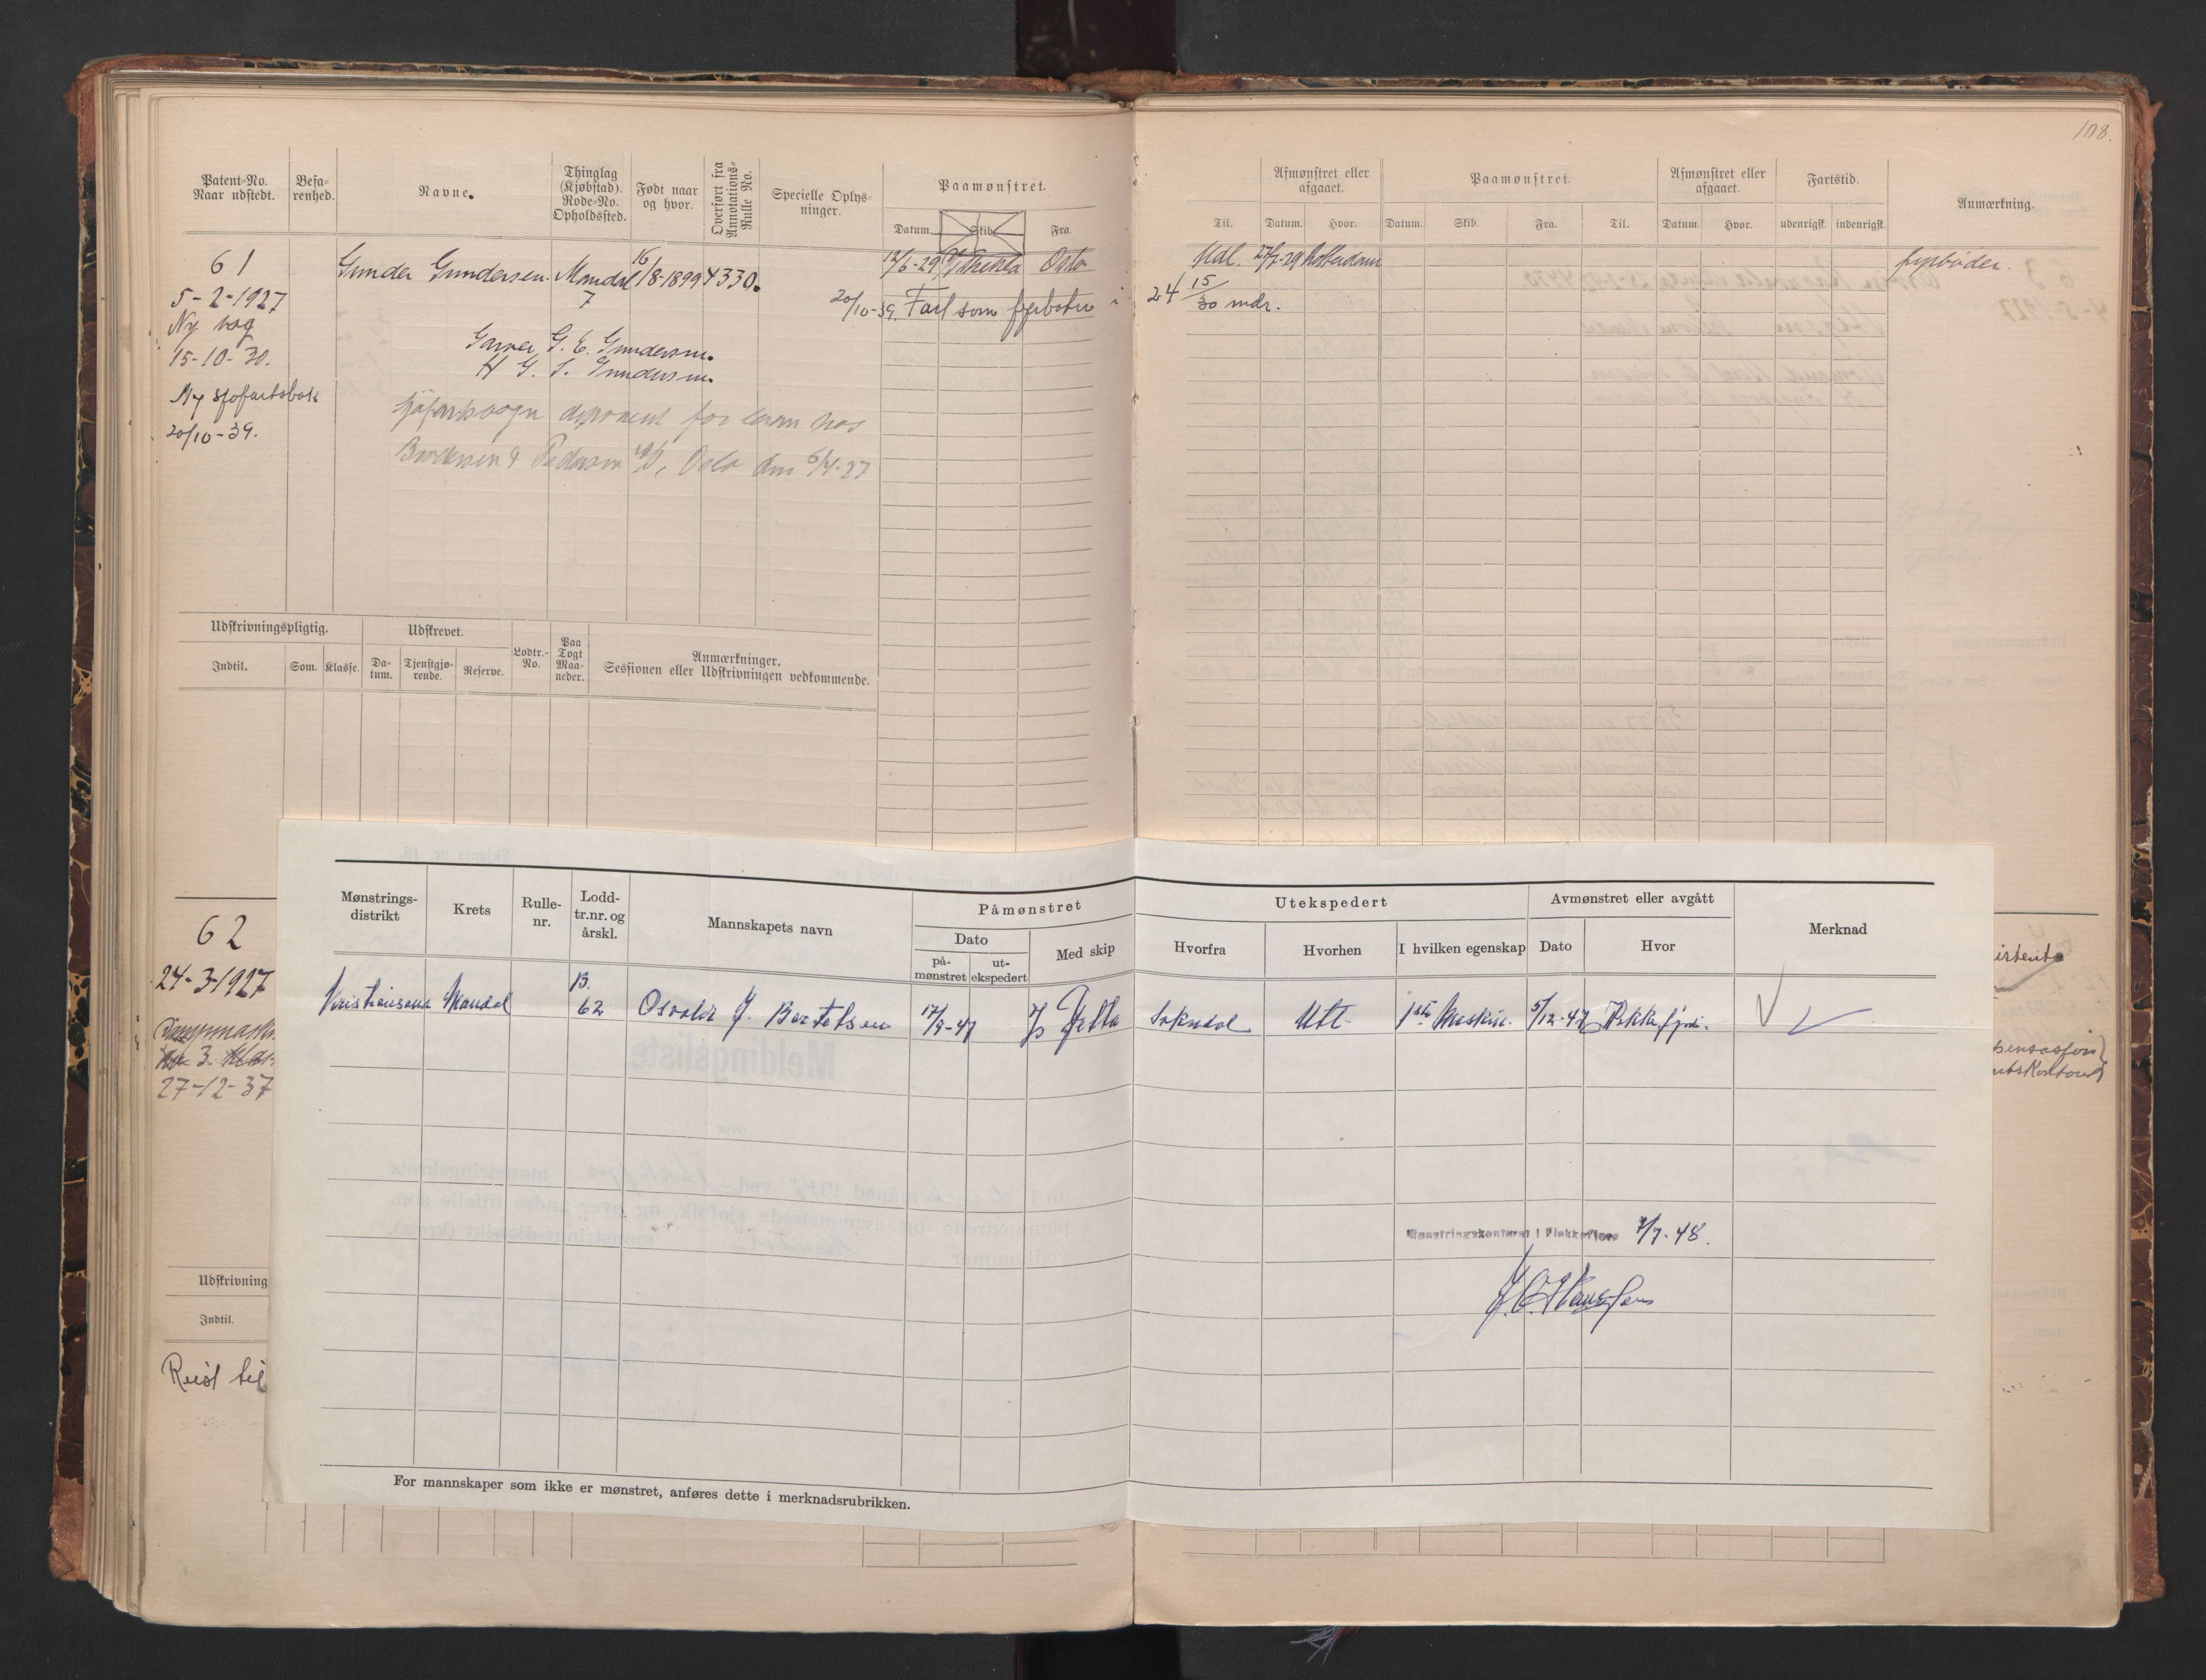 108.
Patent-No.
Naar udstedt.
Befa-
renhed.
Navne.
Thinglag
(Kjøbstad).
Rode-No.
Opholdssted.
Født naar
og hvor.
Overført fra
Annotations-
Rulle No.
Specielle Oplys-
ninger.
Paamønstret.
Datum.
Skib.
Fra.
Til.
Afmønstret eller
afgaaet.
Datum.
Hvor.
Paamønstret.
Datum.
Skib.
Fra.
Til.
Afmønstret eller
afgaaet.
Datum
Hvor.
Fartstid.
udenrigsk.
indenrigsk.
Anmærkning.
61
Gunder Gundersen. Mandal 16/8-1899 4330.
7
12/6-29 Thekla Oslo Udl. 27/7-29 Rotterdam fyrbøder.
5-2-1927
20/10-39. Fart som fyrbøter i 24 15/30 mdr.
Ny bog
15-10-30.
Garver G. E. Gundersen.
H G. S. Gundersen.
Ny sjøfartsbok
20/10-39.
deponent for ham hos
Pedersen A/S, Oslo den 6/4-27
Udskrivningspligtig.
Indtil.
Som.
Klasse.
Udskrevet.
Da-
tum.
Tjenstgjø-
rende.
Reserve.
Lodtr.-
No.
Paa
Togt
Maa-
neder.
Anmærkninger,
Sessionen eller Udskrivningen vedkommende.
Mønstrings-
distrikt
Krets
Rulle-
nr.
Lodd-
tr.nr. og
årskl.
Mannskapets navn
Påmønstret
Dato
på-
mønstret
ut-
ekspedert
Med skip
Utekspedert
Hvorfra
Hvorhen
I hvilken egenskap
Avmønstret eller avgått
Dato
Hvor
Merknad
Kristiansand Mandal B.
62 Osvald J. Bertelsen 17/9-47 Jella Sokndal Utl. 1ste Maskin. 5/12-47 Flekkefjord.
Mønstringskontoret i Flekkefjord 7/7-48.
For mannskaper som ikke er mønstret, anføres dette i merknadsrubrikken.
62
24-3-1927
3. Klas.
27-12-37
Udskrivning
Indtil.
Reist til